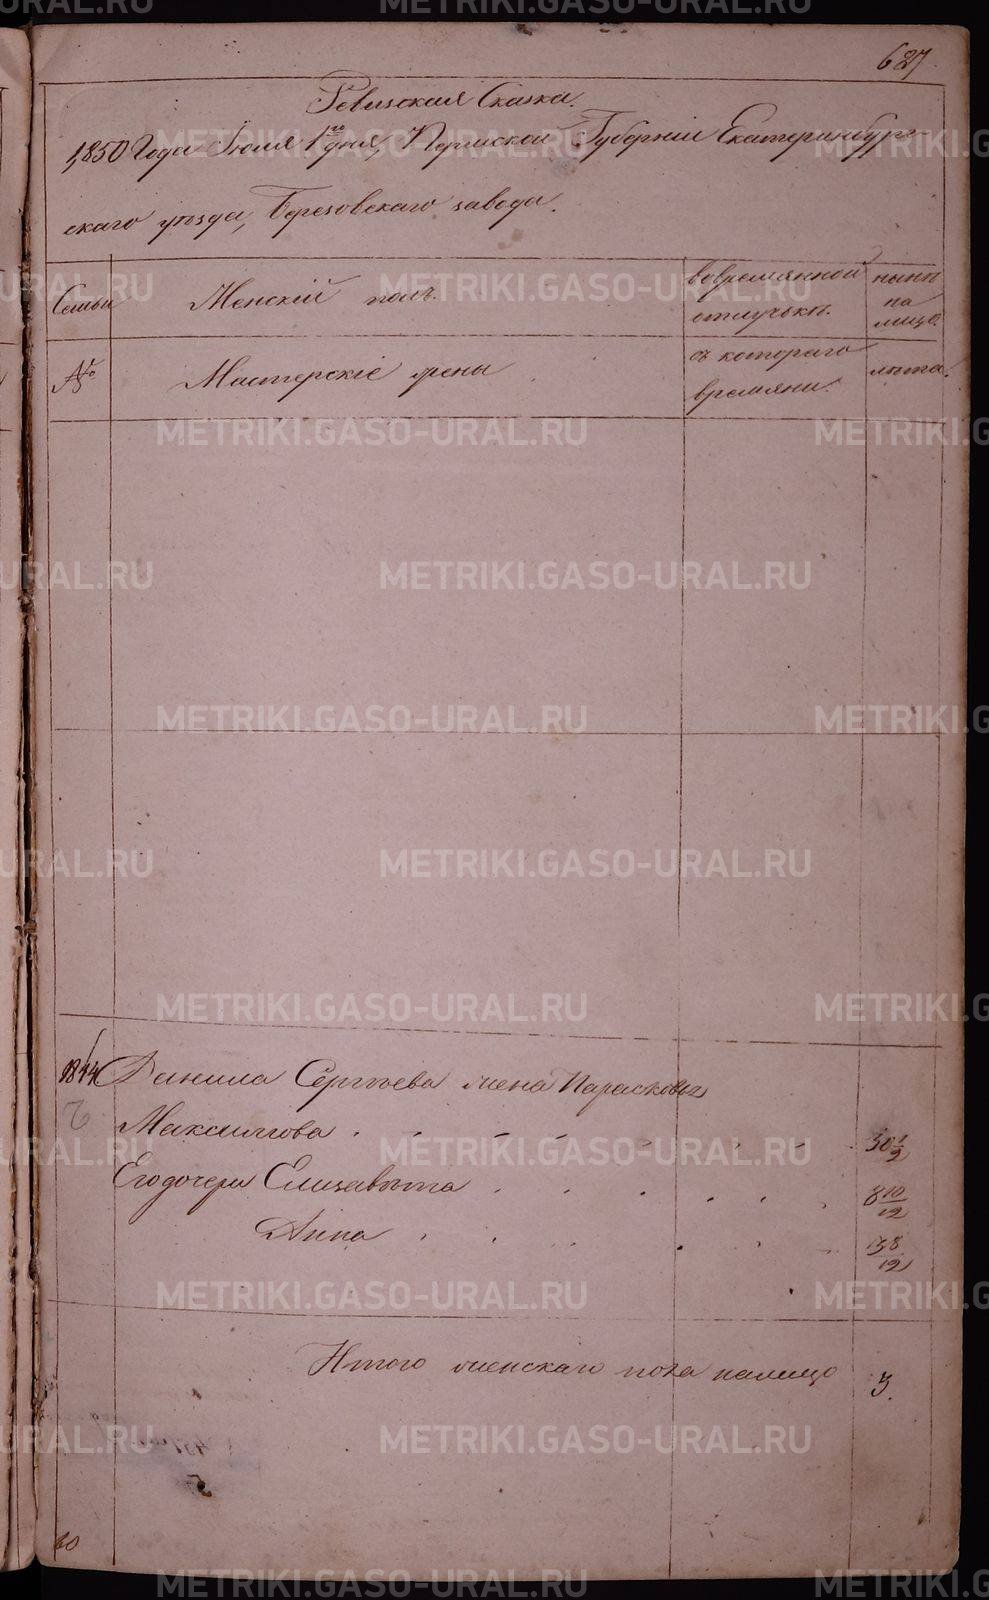 687
Ревизская Сказка.
1850 Года Іюля 1го дня, Пермской Губерніи Екатеринбург-
скаго уѣзда, Березовскаго завода.
Семьи
Женскій полъ.
вовремянной
отлучькѣ.
нынѣ
на
лицо.
№
Мастерскіе жены
съ котораго
времяни.
лѣта.
1844
Данила Сергѣева жена Парасковья
Максимова
30 1/2
Егодочери Елизавѣта
8 10/12
Анна
8/12
Итого женскаго пола налицо
3.
5
60
METRIKI.GASO-URAL.RU